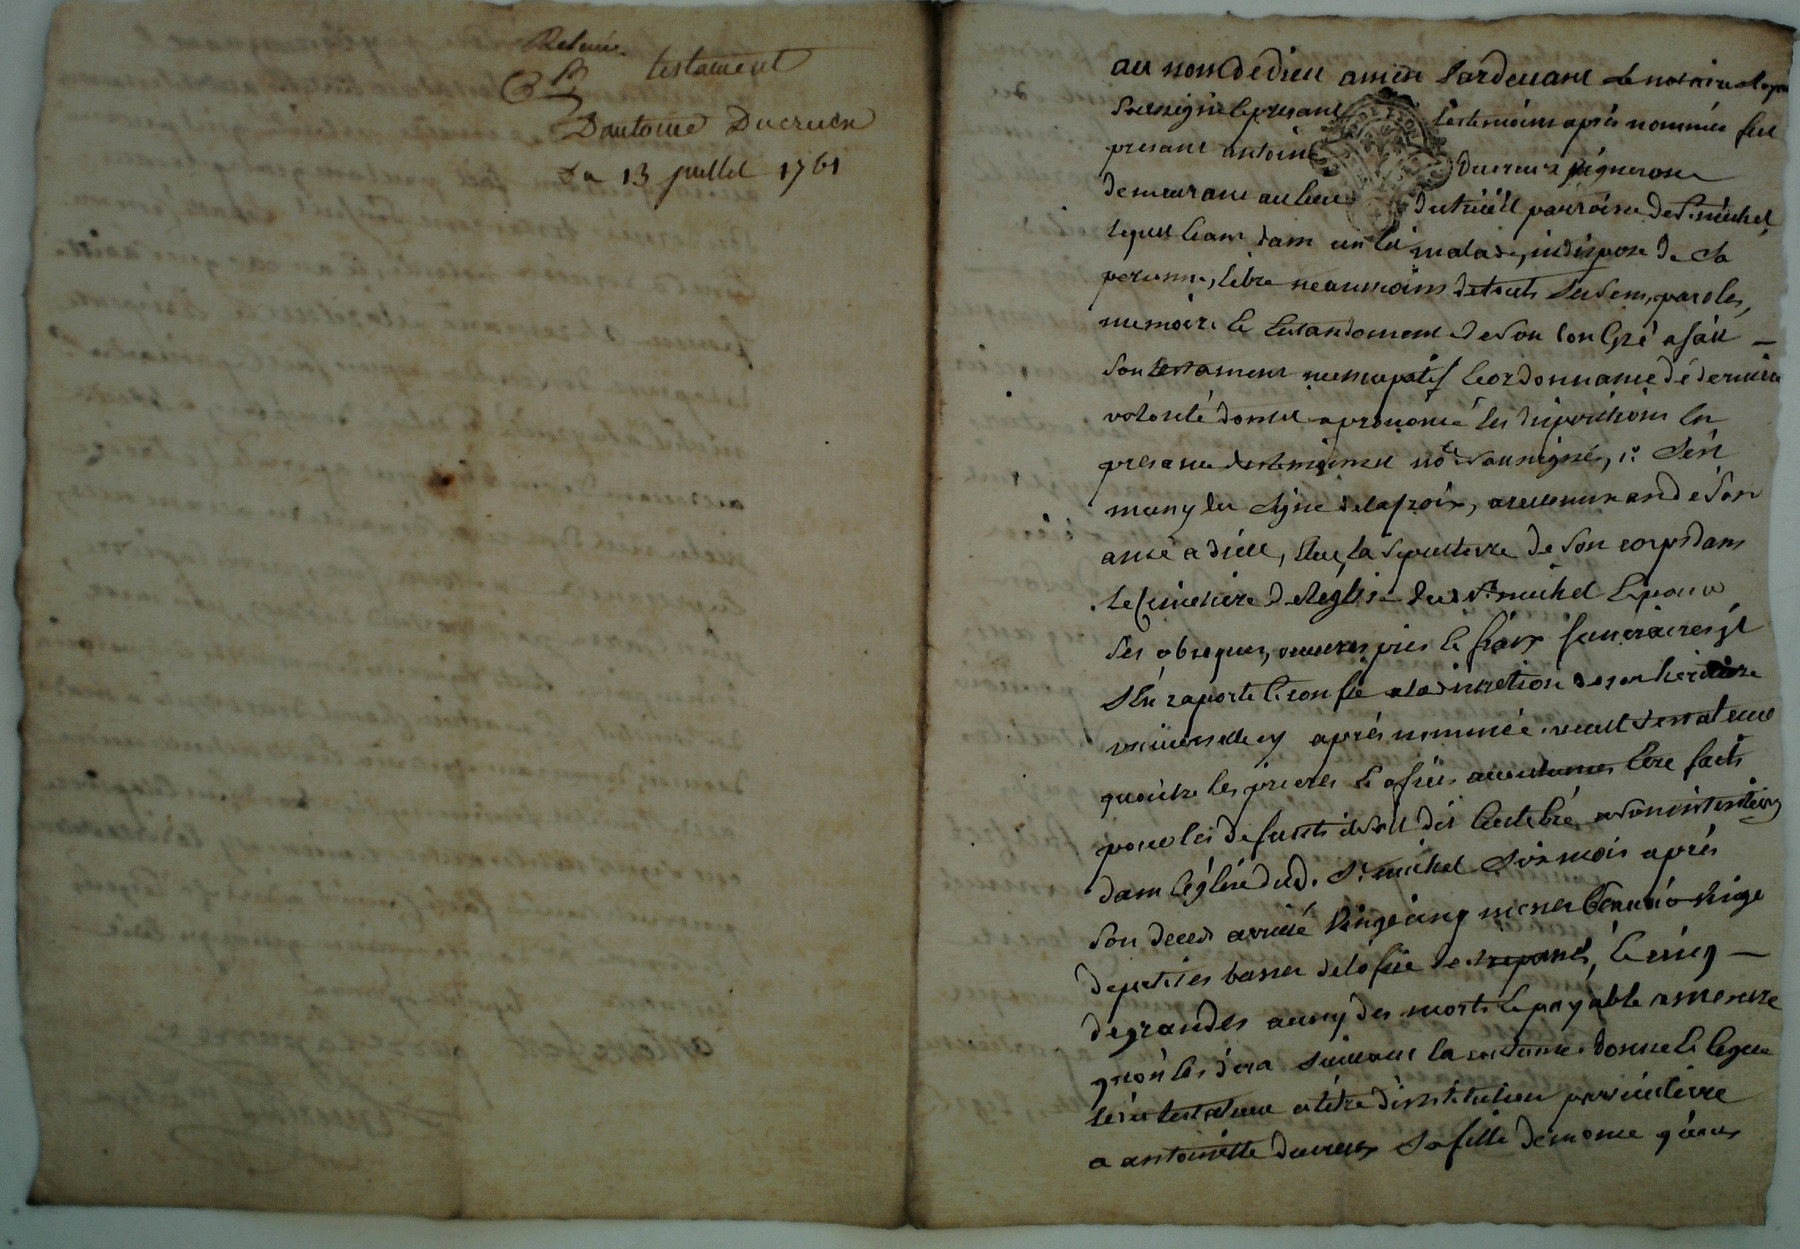 testament
Dantoine Ducreux
Du 13 juillet 1761
au nom de dieu amen Pardevant le notaire Royal
soussigné le presant les temoins après nommés fut
presant antoine Ducreux vigneron
demeurant au lieu du trüeil parroisse de St michel
lequel etant dans un lit malade, indispose de sa
personne, libre neanmoins de touts ses sens, paroles,
memoire et entandement de son bon gré a fait
son testament nuncupatif et ordonnance de derniere
volonté dont il a prononcé les dispositions en
presance des temoins et nore soussignés, 1o S'est
muny du signe de la croix, a recommandé son
ame a dieu, élu la sepulture de son corps dans
le cimetiere de leglise dud. St michel et pour
ses obseques, oeuvres pies et fraix funeraires il
s'en raporte et confie a la discretion de son heritiere
universelle cy après nommée. veut le testateur
qu'outre les prieres et ofices accoutumes etre faits
pour les defunts il soit dit et celebré a son intention
dans l'églisé dud. St michel six mois après
son deces arrivé vingt cinq messes
de petites basses de lofice de , et cinq
de grandes aussy des morts et payable a mesure
qu'on les dira suivant la coutume. donne et legue
led. testateur a titre d'institution particuliere
a antoinette ducreux sa fille